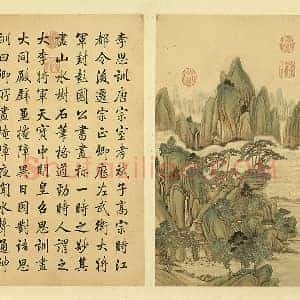 李思訓唐宗室孝斌子高宗時江
都令後遷宗正卿歷左武衛大將
軍封彭國公書一時之妙其
畫山水樹石筆格遒勁時人謂之
大李將軍天寶中明皇召思訓畫
大同殿壁兼障異日因對語思
訓曰卿所畫障夜聞水聲通神